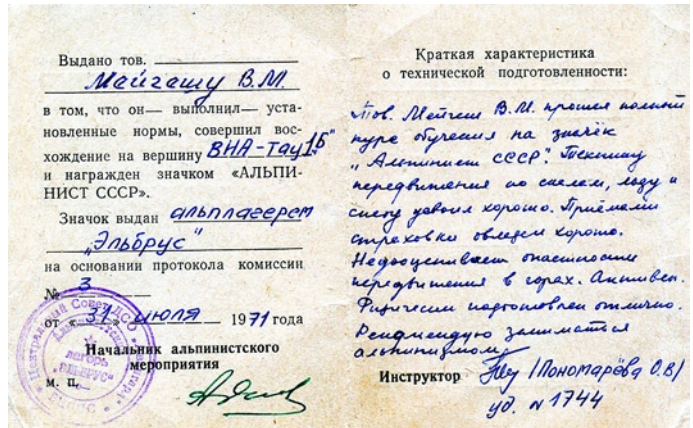 Выдано тов.
Мейгашу В.М.
в том, что он— выполнил— уста-
новленные нормы, совершил вос-
хождение на вершину ВИА-тау 1Б
и награжден значком «АЛЬПИ-
НИСТ СССР».
Значок выдан альплагерем
„Эльбрус“
на основании протокола комиссии
№ 3
от «31» июля 1971 года
Начальник альпинистского
мероприятия
м. п.
Центральный Совет ДСО
лагерь
"ЭЛЬБРУС"
Краткая характеристика
о технической подготовленности:
Тов. Мейгаш В.М. прошел полный
курс обучения на значёк
„Альпинист СССР“. Технику
передвижения по скалам, льду и
снегу усвоил хорошо. Приёмами
страховки овладел хорошо.
Недооценивает опасности
передвижения в горах. Активен.
Физически подготовлен отлично.
Рекомендую заниматься
альпинизмом.
Инструктор /Пономарёва О.В/
уд. № 1744